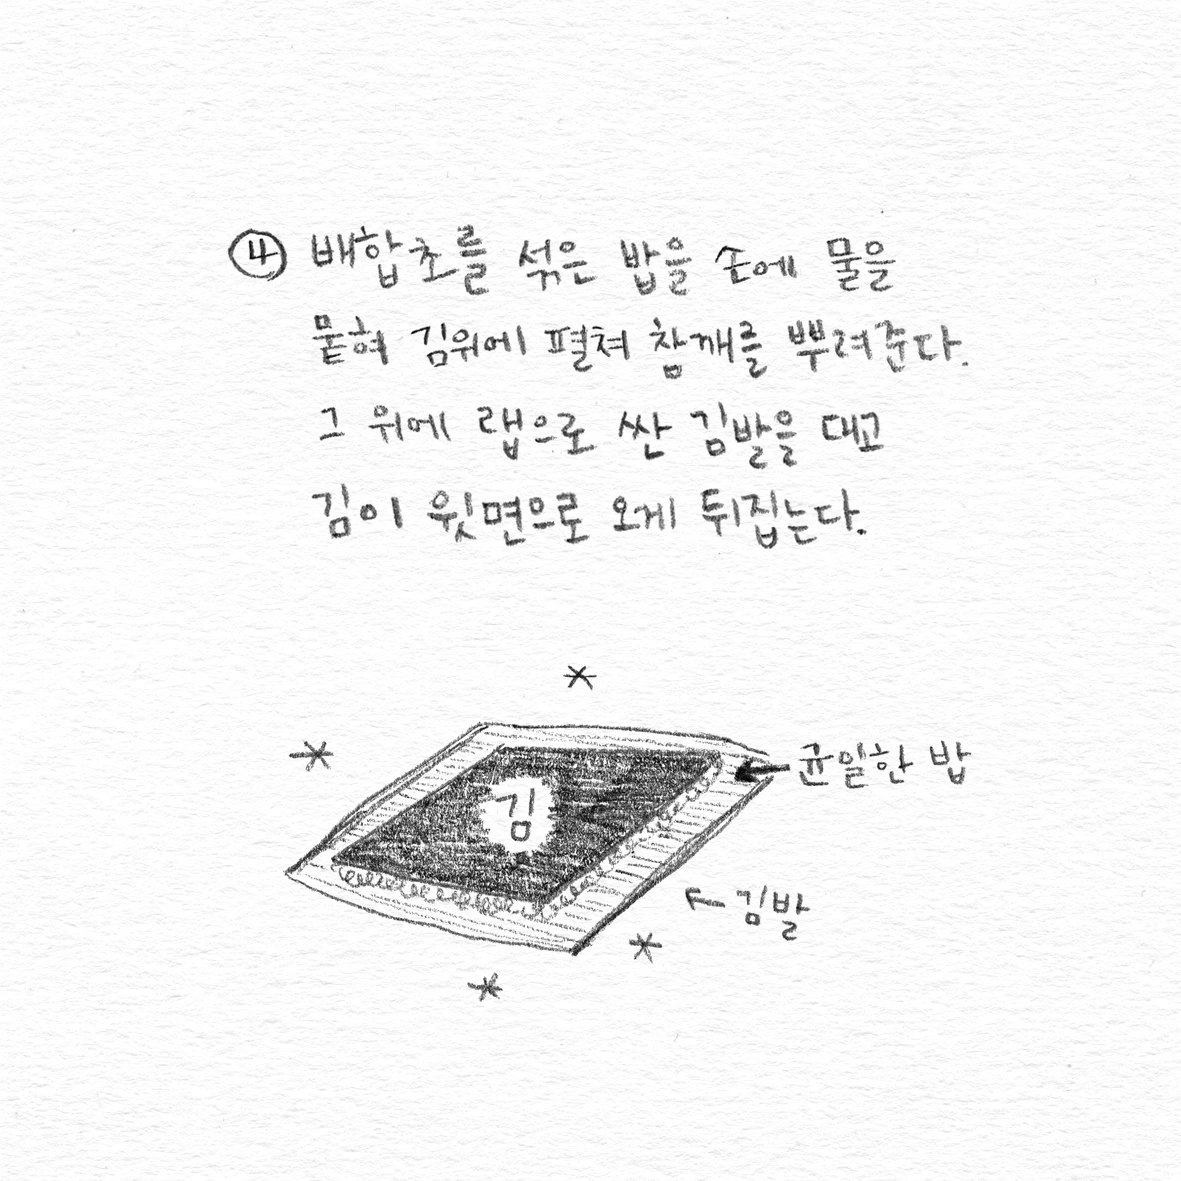 ④ 배합초를 섞은 밥을 손에 물을
뭍혀 김위에 펼쳐 참깨를 뿌려준다.
그 위에 랩으로 싼 김발을 대고
김이 윗면으로 오게 뒤집는다.
균일한 밥
김
김발